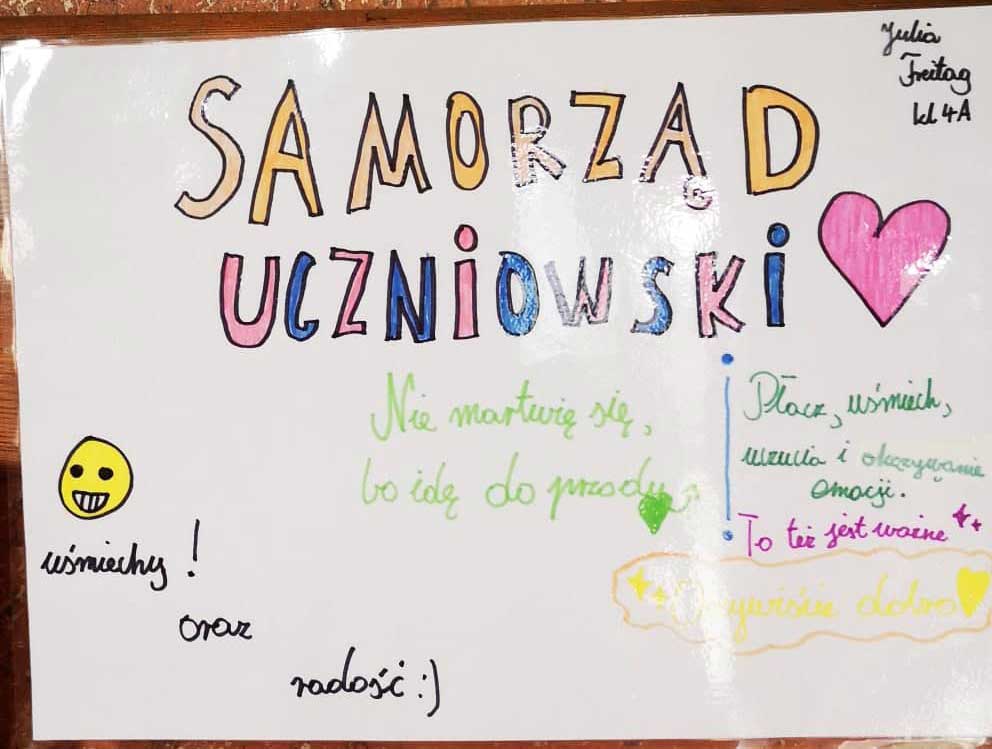 Julia
Freitag
kl 4A
SAMORZĄD
UCZNIOWSKI
Nie martwię się,
bo idę do przodu
Płacz, uśmiech,
uczucia i okazywanie
emocji.
To też jest ważne
Oczywiście dobro
uśmiechy!
oraz
radość :)